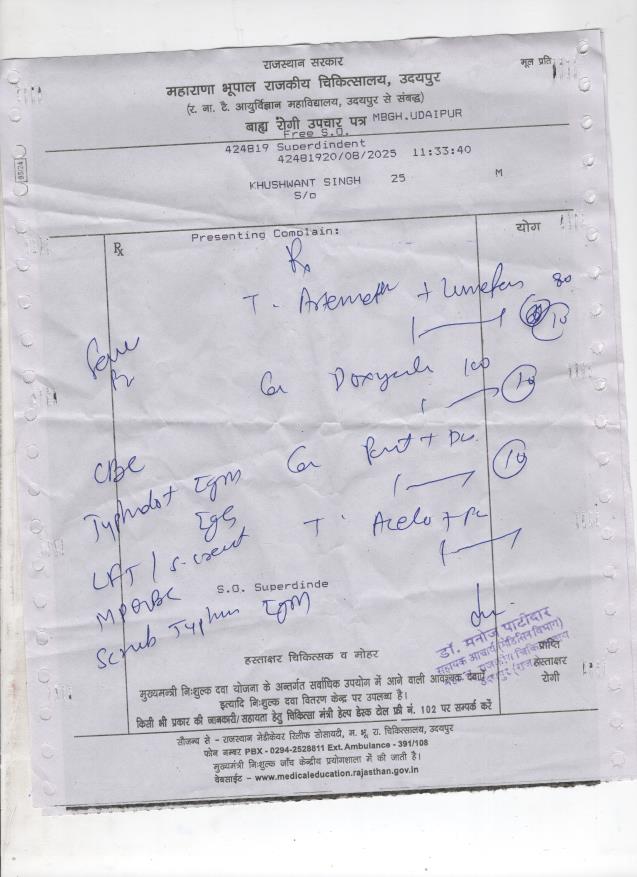 राजस्थान सरकार
मूल प्रति
महाराणा भूपाल राजकीय चिकित्सालय, उदयपुर
(र. ना. टै. आयुर्विज्ञान महाविद्यालय, उदयपुर से संबद्ध)
बाह्य रोगी उपचार पत्र MBGH.UDAIPUR
Free S.O.
424819 Superdindent
42481920/08/2025 11:33:40
KHUSHWANT SINGH 25 M
S/o
Rx Presenting Complain: योग
Rx
T. + 80
10
Doxycycle 100
10
CBC
+
10
Typhidot IgM
IgG
LFT / S. creat
T. Aceclo +
S.O. Superdinde
Scrub Typhus IgM
डॉ. मनोज पाटीदार
सहायक आचार्य (मेडिसिन विभाग)
हस्ताक्षर चिकित्सक व मोहर
प्राप्ति
हस्ताक्षर
रोगी
मुख्यमन्त्री निःशुल्क दवा योजना के अन्तर्गत सर्वाधिक उपयोग में आने वाली आवश्यक दवाएँ
इत्यादि निःशुल्क दवा वितरण केन्द्र पर उपलब्ध है।
किसी भी प्रकार की जानकारी/सहायता हेतु चिकित्सा मंत्री हेल्प डेस्क टोल फ्री नं. 102 पर सम्पर्क करें
सौजन्य से - राजस्थान मेडीकेयर रिलीफ सोसायटी, म. भू. रा. चिकित्सालय, उदयपुर
फोन नम्बर PBX - 0294-2528811 Ext. Ambulance - 391/108
मुख्यमन्त्री निःशुल्क जाँच केन्द्रीय प्रयोगशाला में की जाती है।
वेबसाईट - www.medicaleducation.rajasthan.gov.in